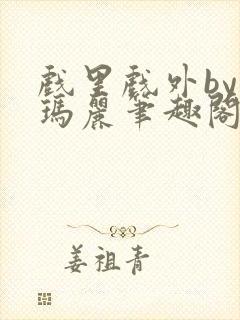 戲里戲外by
瑪麗筆趣閣
姜祖青